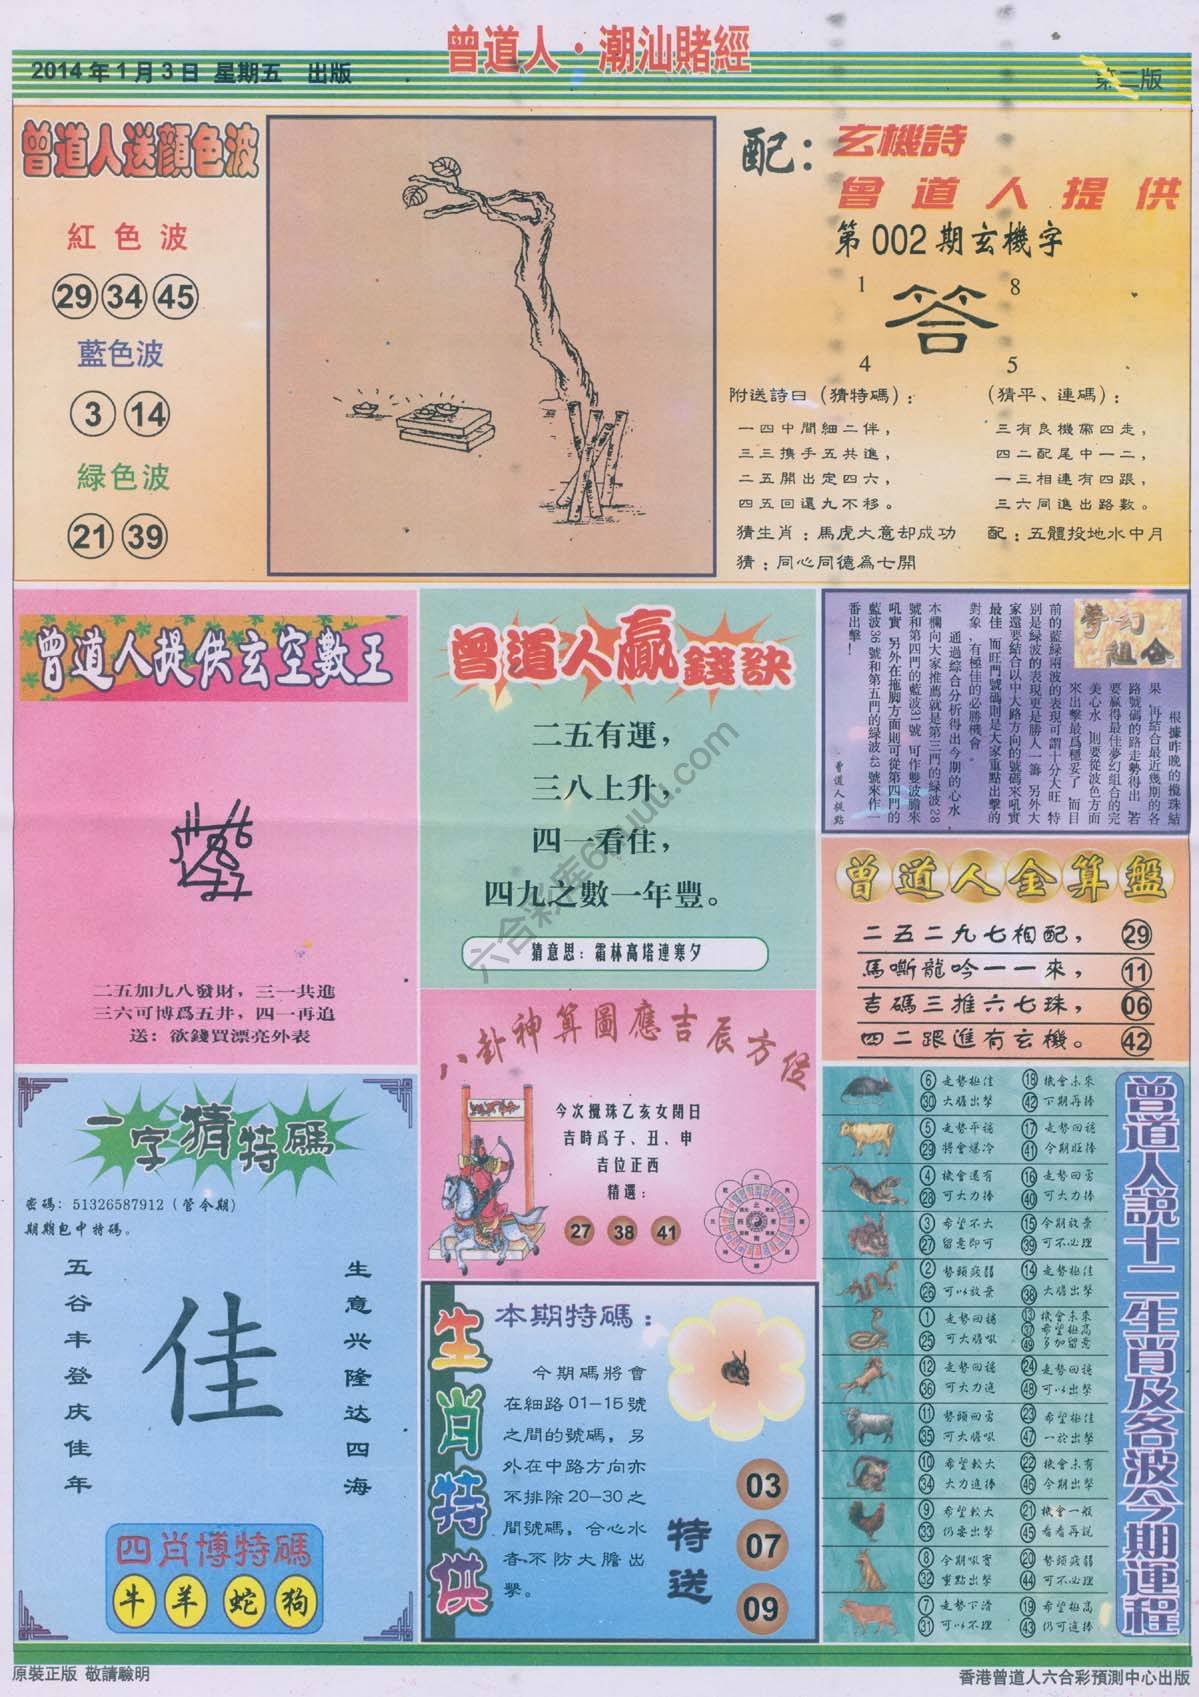 曾道人·潮汕賭經
2014年1月3日 星期五 出版
第二版
曾道人送顏色波
紅色波
29 34 45
藍色波
3 14
緑色波
21 39
配：
玄機詩
曾道人提供
第002期玄機字
1 8
答
4 5
附送詩曰（猜特碼）：
一四中間細二伴，
三三携手五共進，
二五開出定四六，
四五回還九不移。
（猜平、連碼）：
三有良機需四走，
四二配尾中一二，
一三相連有四跟，
三六同進出路數。
猜生肖：馬虎大意却成功
配：五體投地水中月
猜：同心同德為七開
曾道人提供玄空數王
二五加九八發財，三一共進
三六可博爲五井，四一再追
送：欲錢買漂亮外表
曾道人贏錢訣
二五有運，
三八上升，
四一看住，
四九之數一年豐。
猜意思：霜林高塔連寒夕
夢幻組合
根據昨晚的攪珠結
果，再結合最近幾期的各
路號碼的路走勢得出，若
要贏得最佳夢幻組合的完
美心水，則要從波色方面
來出擊最爲穩妥了，而目
前的藍緑兩波的表現可謂十分大旺，特
别是緑波的表現更是勝人一籌，另外大
家還要結合以中大路方向的號碼來吼實
最佳，而旺門號碼則是大家重點出擊的
對象，有極佳的必勝機會。
通過綜合分析得出今期的心水
本欄向大家推薦就是第三門的緑波28
號和第四門的藍波31號，可作雙波膽來
吼實，另外在拖脚方面則可從第四門的
藍波36號和第五門的緑波43號來作一
番出擊！
曾道人提點
曾道人金算盤
二五二九七相配， 29
馬嘶龍吟一一來， 11
吉碼三推六七珠， 06
四二跟進有玄機。 42
八卦神算圖應吉辰方從
今次攪珠乙亥女閉日
吉時爲子、丑、申
吉位正西
精選：
27 38 41
一字猜特碼
密碼：51326587912（管今期）
期期包中特碼。
五谷丰登庆佳年
佳
生意兴隆达四海
四肖博特碼
牛 羊 蛇 狗
生肖特供
本期特碼：
今期碼將會
在細路01-15號
之間的號碼，另
外在中路方向亦
不排除20-30之
間號碼，合心水
者不防大膽出
擊。
特送
03
07
09
曾道人説十二生肖及各波今期運程
6 走勢極佳 18 機會未來
30 大膽出擊 42 下期再捧
5 走勢平穩 17 走勢回穩
29 將會爆冷 41 今期旺捧
4 機會還有 16 走勢回勇
28 可大力捧 40 可大力捧
3 希望不大 15 今期放棄
27 留意即可 39 可不必理
2 勢頭疲弱 14 走勢極佳
26 可以放棄 38 大膽出擊
1 走勢回穩 13 機會未來
25 可大膽吼 37 希望極高
49 多加留意
12 走勢回穩 24 走勢回穩
36 可大力追 48 可以出擊
11 勢頭回勇 23 希望極佳
35 可大膽吼 47 一於出擊
10 希望較大 22 機會未有
34 大力追捧 46 今期出擊
9 希望較大 21 機會一般
33 仍要出擊 45 看看再說
8 今期吼實 20 勢頭疲弱
32 重點出擊 44 可不必理
7 走勢下滑 19 希望極高
31 可以不理 43 仍可追捧
原裝正版 敬請驗明
香港曾道人六合彩預測中心出版